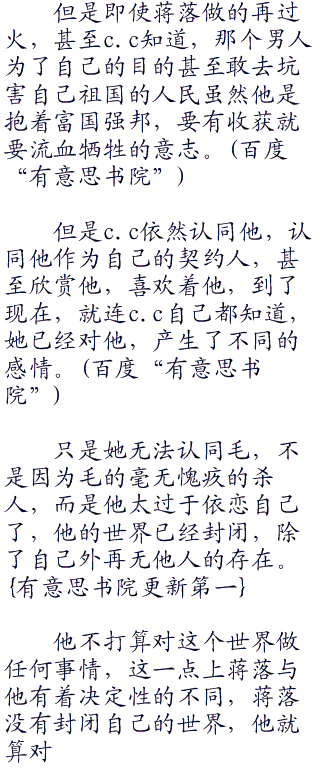 但是即使蒋落做的再过
火，甚至c.c知道，那个男人
为了自己的目的甚至敢去坑
害自己祖国的人民虽然他是
抱着富国强邦，要有收获就
要流血牺牲的意志。(百度
“有意思书院”)
但是c.c依然认同他，认
同他作为自己的契约人，甚
至欣赏他，喜欢着他，到了
现在，就连c.c自己都知道，
她已经对他，产生了不同的
感情。(百度“有意思书
院”)
只是她无法认同毛，不
是因为毛的毫无愧疚的杀
人，而是他太过于依恋自己
了，他的世界已经封闭，除
了自己外再无他人的存在。
{有意思书院更新第一}
他不打算对这个世界做
任何事情，这一点上蒋落与
他有着决定性的不同，蒋落
没有封闭自己的世界，他就
算对